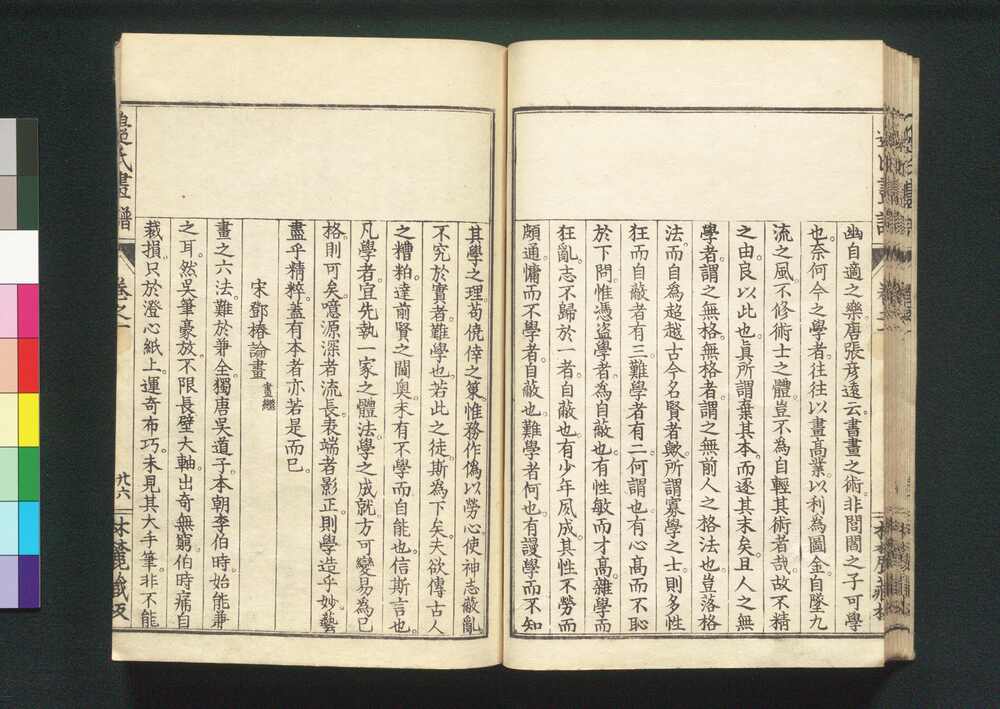 幽自適之樂唐張彥遠云書畫之術非閭閻之子可學
也奈何今之學者往往以畫髙業以利為圖金自墜九
流之風不修術士之體豈不為自輕其術者哉故不精
之由良以此也真所謂棄其本而逐其末矣且人之無
學者謂之無格無格者謂之無前人之格法也豈落格
法而自為超越古今名賢者歟所謂寡學之士則多性
狂而自蔽者有三難學者有二何謂也有心髙而不恥
於下問惟憑盜學者為自蔽也有性敏而才髙雜學而
狂亂志不歸於一者自蔽也有少年夙成其性不勞而
頗通慵而不學者自蔽也難學者何也有謾學而不知
其學之理苟僥倖之策惟務作偽以勞心使神志蔽亂
不究於實者難學也若此之徒斯為下矣夫欲傳古人
之糟粕達前賢之閫奧未有不學而自能也信斯言也
凡學者宜先執一家之體法學之成就方可變易為己
格則可矣噫源深者流長表端者影正則學造乎妙藝
盡乎精粹蓋有本者亦若是而已
宋鄧椿論畫 畫繼
畫之六法難於兼全獨唐吳道子本朝李伯時始能兼
之耳然吳筆豪放不限長壁大軸出奇無窮伯時痛自
裁損只於澄心紙上運奇布巧未見其大手筆非不能
氏畫譜 卷之一 廿六